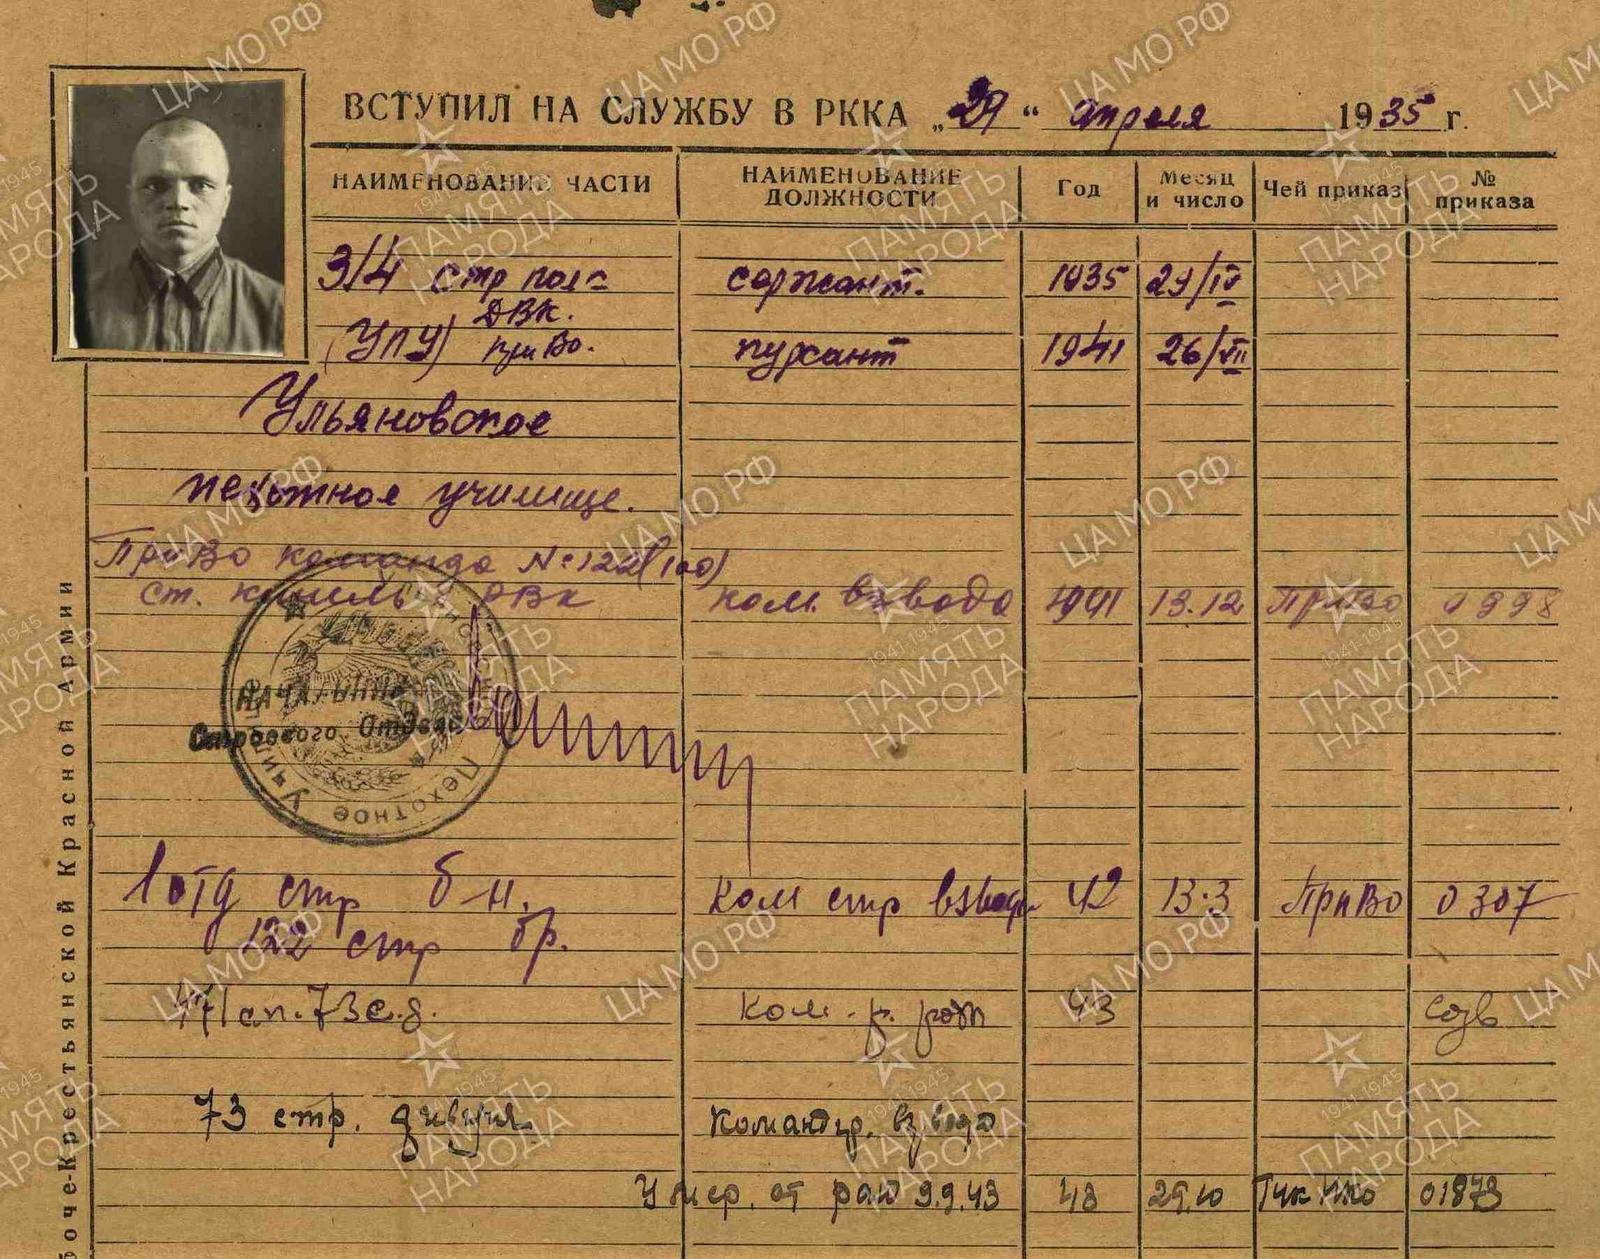 ВСТУПИЛ НА СЛУЖБУ В РККА „29“ апреля 1935 г.
НАИМЕНОВАНИЕ ЧАСТИ
НАИМЕНОВАНИЕ ДОЛЖНОСТИ
Год
Месяц и число
Чей приказ
№ приказа
3/4 стр полк сержант. 1935 29/IV
ДВК.
(УПУ) ПриВо. курсант 1941 26/VII
Ульяновское
пехотное училище.
ПриВо команда № 122 (100)
ст. РВК ком. взвода 1941 13.12 ПриВо 0998
НАЧАЛЬНИК
Строевого Отдела
Пехотное Училище
1 отд стр б-н. Ком стр взвода 42 13.3 ПриВо 0307
122 стр бр.
471 сп. 73 с.д. Ком. р. роты 43
73 стр. дивизия Командир. взвода
Умер. от ран 9.9.43 43 29.10 ГУК НКО 01873
боче-Крестьянской Красной Армии
ЦАМО РФ
ПАМЯТЬ НАРОДА
1941-1945